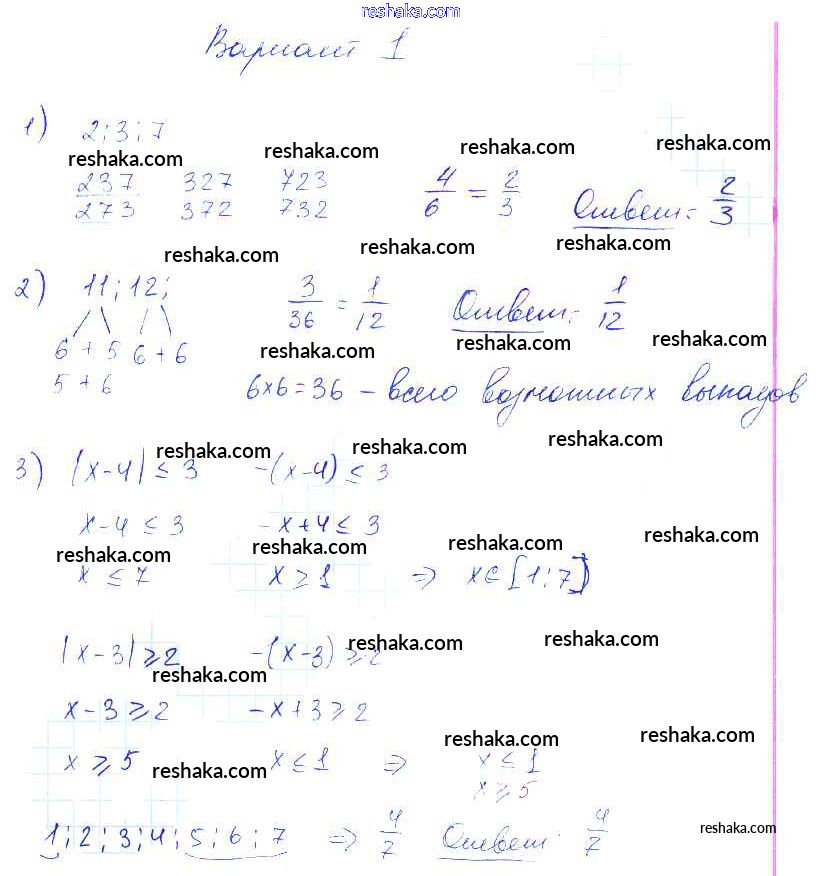 reshaka.com
Вариант 1
1) 2; 3; 7
reshaka.com reshaka.com reshaka.com reshaka.com
237 327 723 4/6 = 2/3 Ответ: 2/3
273 372 732
reshaka.com reshaka.com reshaka.com
2) 11; 12; 3/36 = 1/12 Ответ: 1/12
6 + 5 6 + 6 reshaka.com reshaka.com reshaka.com
5 + 6 6×6=36 – всего возможных выпадов
reshaka.com reshaka.com reshaka.com
3) |x-4| ≤ 3 -(x-4) ≤ 3
x-4 ≤ 3 -x+4 ≤ 3
reshaka.com reshaka.com reshaka.com reshaka.com
x ≤ 7 x ≥ 1 ⇒ x∈[1;7]
reshaka.com reshaka.com
|x-3| ≥ 2 -(x-3) ≥ 2
reshaka.com
x-3 ≥ 2 -x+3 ≥ 2
reshaka.com reshaka.com
x ≥ 5 x ≤ 1 ⇒ x ≤ 1
reshaka.com x ≥ 5
1; 2; 3; 4; 5; 6; 7 ⇒ 4/7 Ответ: 4/7
reshaka.com